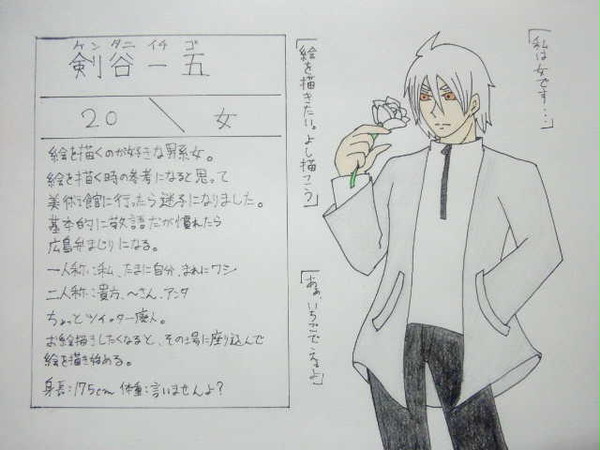 ケンダニ イチ ゴ
剣谷一五
20 \ 女
絵を描くのが好きな男系女。
絵を描く時の参考になると思って
美術館に行ったら迷子になりました。
基本的に敬語だが慣れたら
広島弁まじりになる。
一人称:私、たまに自分、まれにワシ
二人称:貴方、〜さん、アンタ
ちょっとツイッター廃人。
お絵描きしたくなると、その場に座り込んで
絵を描き始める。
身長:175cm 体重:言いませんよ?
「私は女です…」
「絵を描きたい。よし描こう」
「あぁ、いちごでええよ」